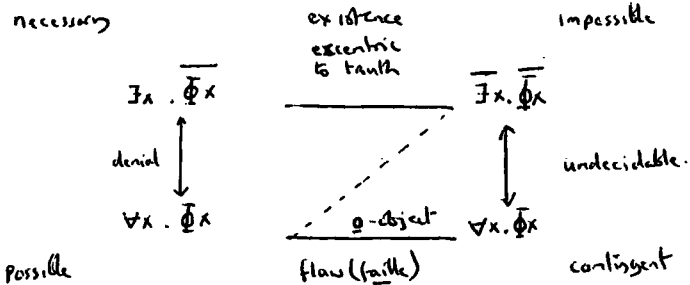 necessary existence impossible
eccentric
to truth
∃x . Φ̅x̅ ∃̅x̅ . Φ̅x̅
denial undecidable.
∀x . Φx o-object ∀x . Φx
possible flaw (faille) contingent